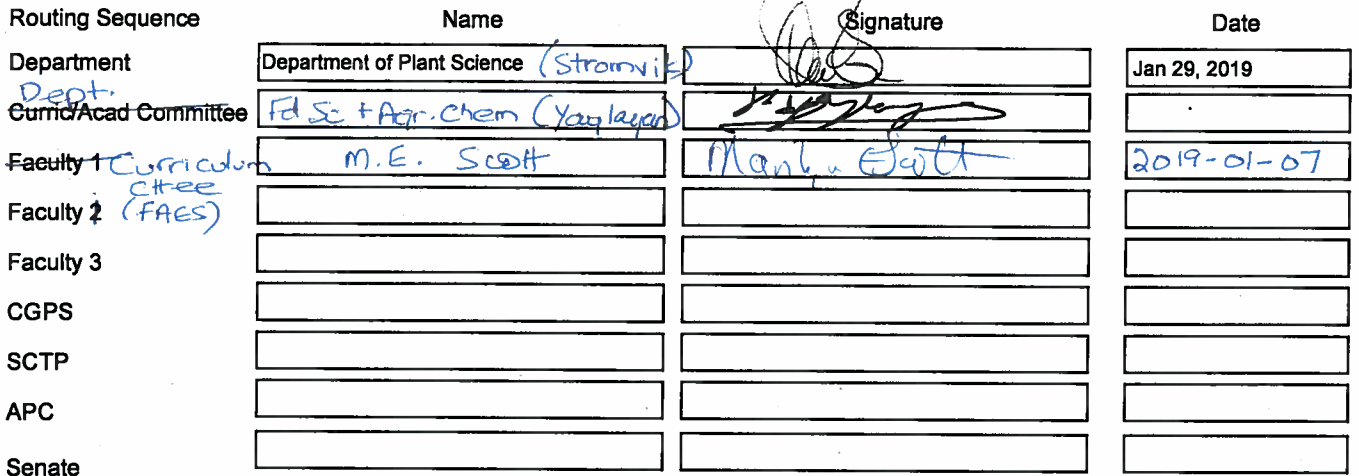 Routing Sequence Name Signature Date
Department Department of Plant Science (Stromvik) Jan 29, 2019
Dept.
Curric/Acad Committee Fd Sc + Agr. Chem (Yaylayan)
Faculty 1 Curriculum M.E. Scott Marilyn E Scott 2019-01-07
Cttee
Faculty 2 (FAES)
Faculty 3
CGPS
SCTP
APC
Senate